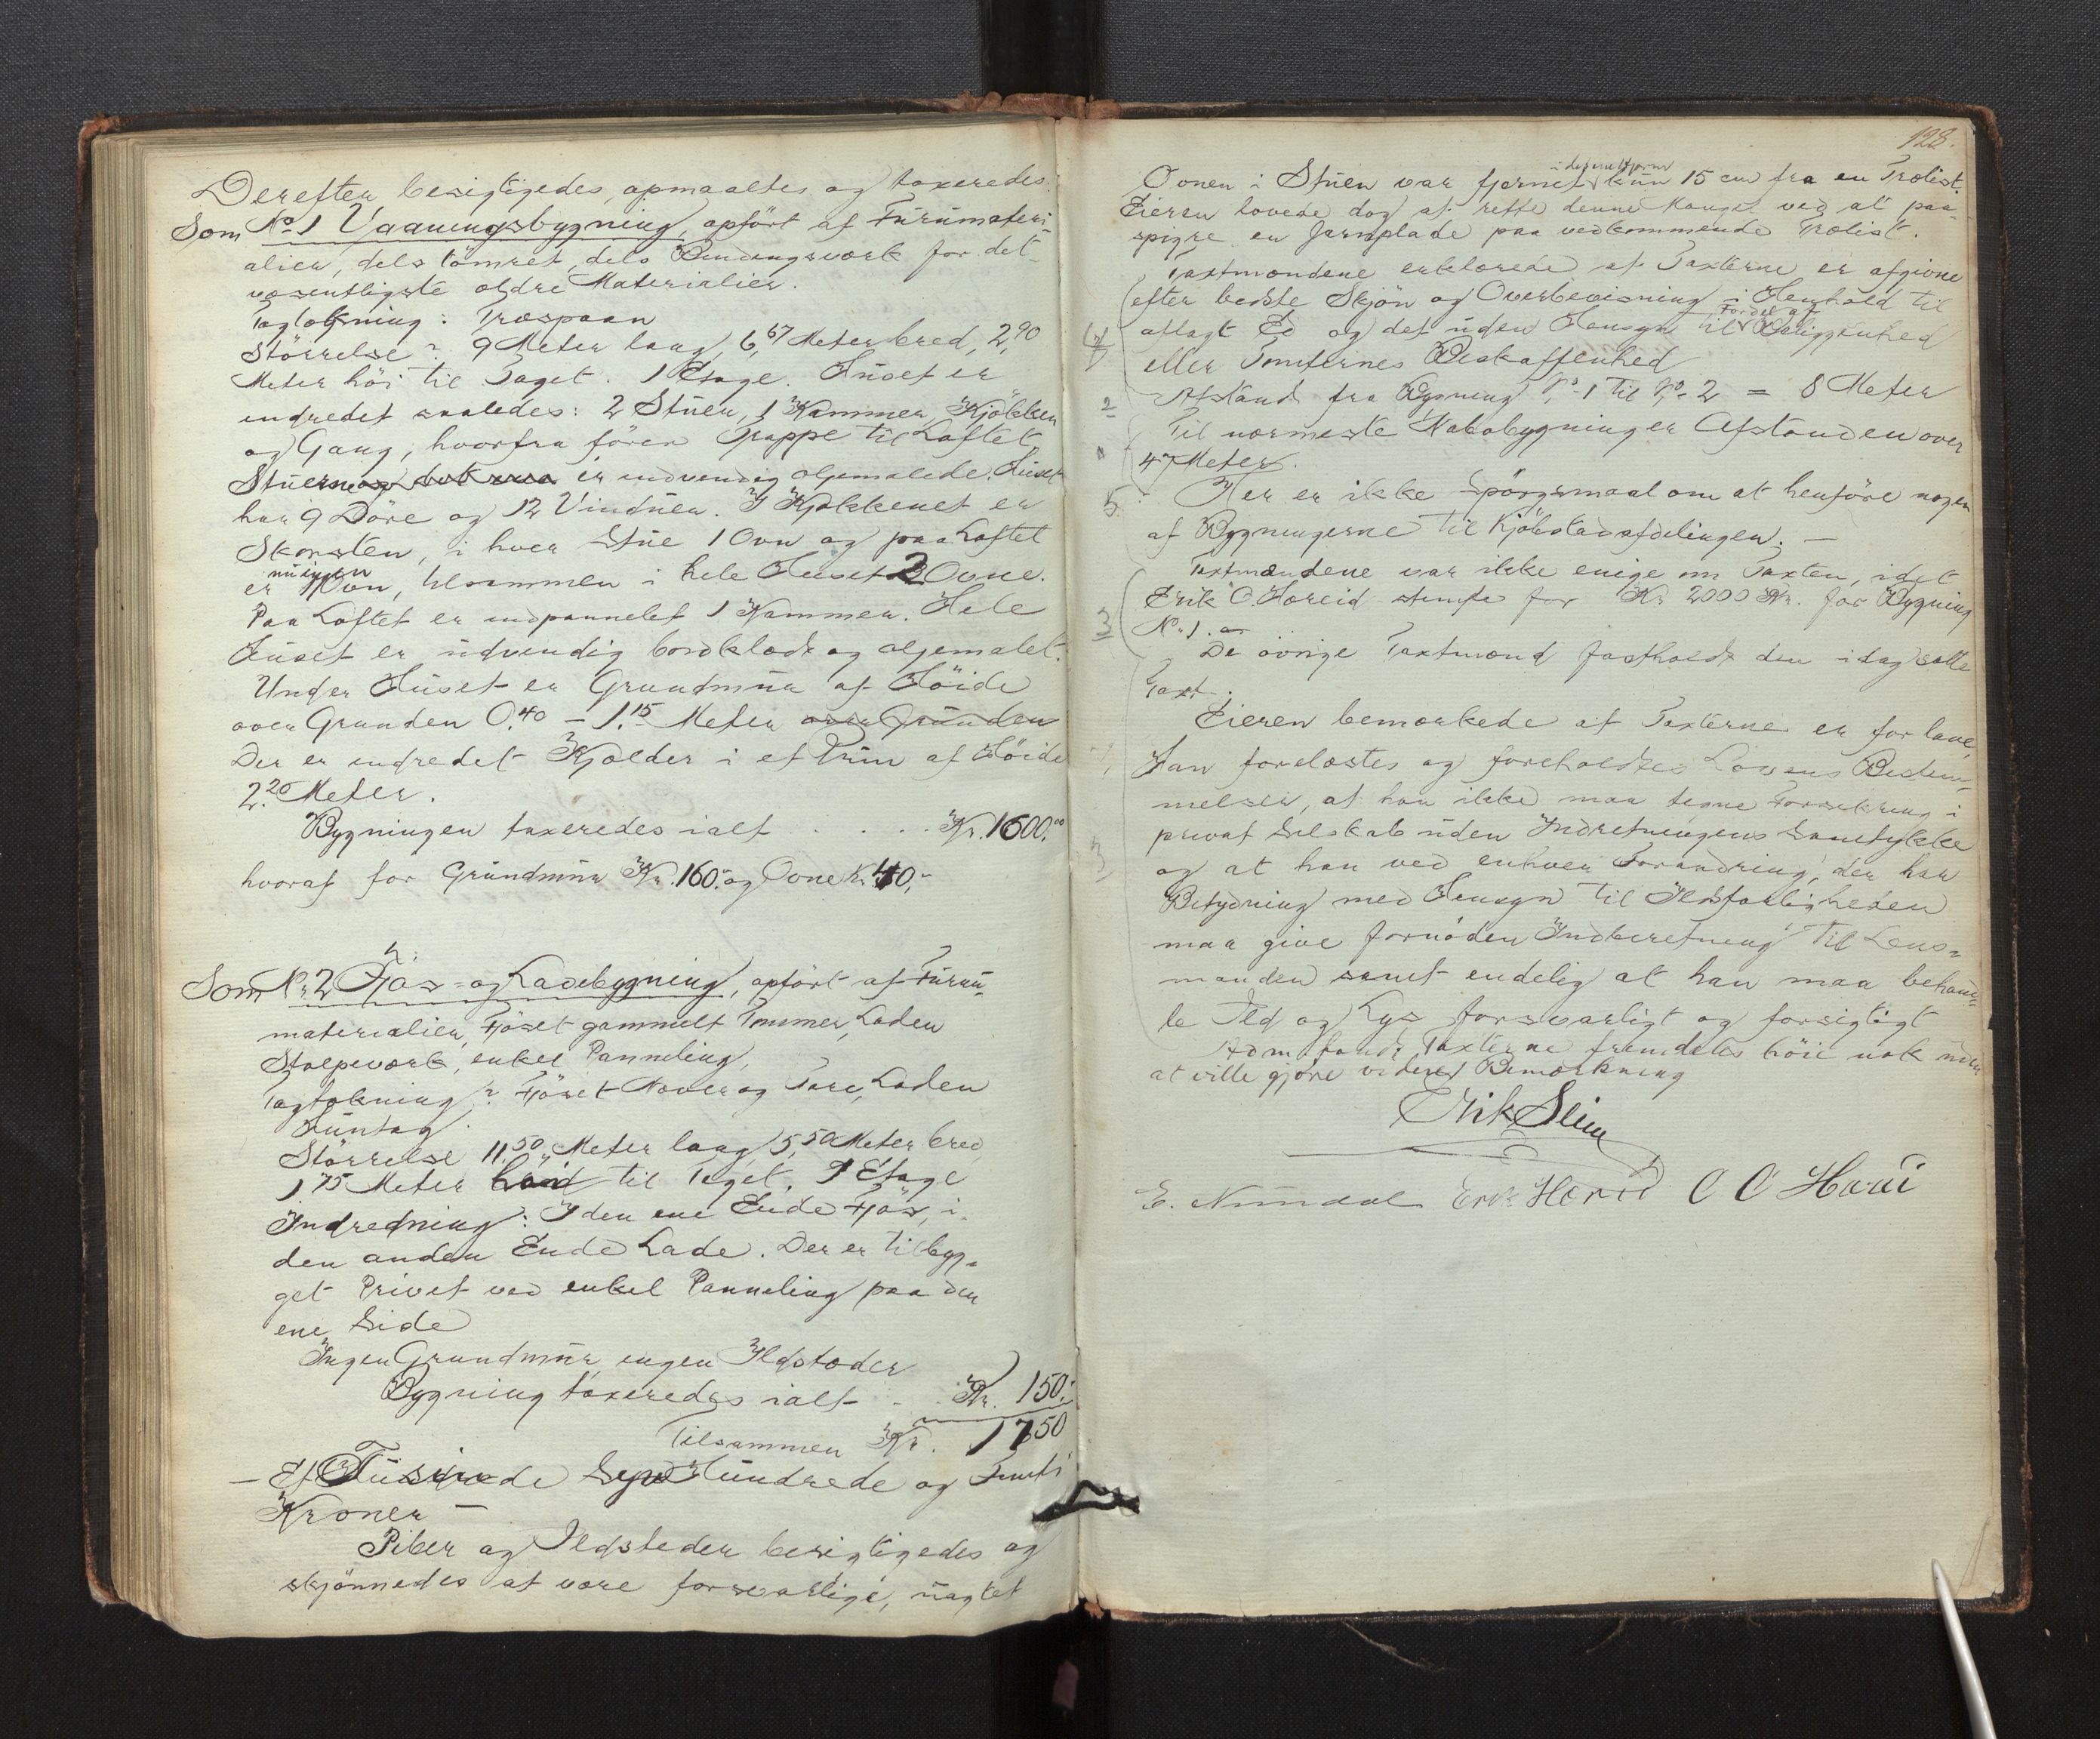 Derefter besigtigedes, opmaaltes og taxeredes:
Som No 1 Vaaningsbygning, opfört af Furumateri-
alier, dels tömret, dels Bindingsværk for det
væsentligste ældre Materialier.
Tagtækning: Træspaan
Störrelse: 9 Meter lang, 6,67 Meter bred, 2,90
Meter höi til Taget. 1 Etage. Huset er
indredet saaledes: 2 Stuer, 1 Kammer, Kjökken
og Gang, hvorfra förer Trappe til Loftet
Stuerne er indvendig oljemalede. Huset
har 9 Döre og 12 Vinduer. I Kjökkenet er
Skorsten, i hver Stue 1 Ovn og paa Loftet
er ingen Ovn, tilsammen i hele Huset 2 Ovne.
Paa Loftet er indpannelet 1 Kammer. Hele
Huset er udvendig bordklædt og oljemalet.
Under Huset er Grundmur af Höide
over Grunden 0.40 - 1.15 Meter over Grunden
Der er indredet Kjælder i et Rum af Höide
2.20 Meter.
Bygningen taxeredes ialt . . . . Kr. 1600.00
hvoraf for Grundmur Kr. 160.- og Ovne Kr. 40,-
Som No 2 Fjös- og Ladebygning, opfört af Furu-
materialier, Fjöset gammelt Tømmer, Laden
Stolpeværk, enkel Panneling,
Tagtækning: Fjöset Næver og Torv, Laden
Störrelse 11,50 Meter lang, 5,50 Meter bred,
1,75 Meter til Taget. 1 Etage
Indredning: I den ene Ende Fjös, i
den anden Ende Lade. Der er tilbyg-
get Privet ved enkel Panneling paa den
ene Side
Ingen Grundmur, ingen Ildstæder
Bygning taxeredes ialt . . Kr. 150,-
Tilsammen Kr. 1750
- Et Tusinde Syv Hundrede og Femti
Kroner -
Piber og Ildsteder besigtigedes og
skjönnedes at være forsvarlige, uagtet
128.
Ovnen i Stuen var fjernet kun 15 cm fra en Trælist.
Eieren lovede dog at rette denne Mangel ved at paa-
spigre en Jernplade paa vedkommende Trælist.
Taxtmændene erklærede at Taxterne er afgivne
efter bedste Skjön og Overbevisning i Henhold til
aflagt Ed og det uden Hensyn til Fordel af Beliggenhed
eller Tomternes Beskaffenhed
Afstand fra Bygning No 1 til No 2 = 8 Meter
Til nærmeste Nabobygning er Afstanden over
47 Meter.
5
Her er ikke Spörgsmaal om at henföre nogen
af Bygningerne til Kjöbstadafdelingen. -
Taxtmændene var ikke enige om Taxten, idet
Erik O. Horeid stemte for Kr 2000 Kr. for Bygning
3
No 1.
De övrige Taxtmænd fastholdt den idag satte
Taxt.
Eieren bemærkede at Taxterne er for lave,
Han forelæstes og foreholdtes Lovens Bestem-
melser, at han ikke maa tegne Forsikring i
privat Selskab uden Indretningens Samtykke
og at han ved enhver Forandring, der har
Betydning med Hensyn til Ildsfarligheden
maa give fornöden Indberetning til Lens-
manden samt endelig at han maa behand-
le Ild og Lys forsvarligt og forsigtigt
fandt Taxterne fremdeles höie nok uden
at ville gjöre videre Bemærkning
Erik Slim
E. Nundal Erik Horeid O O Hovi